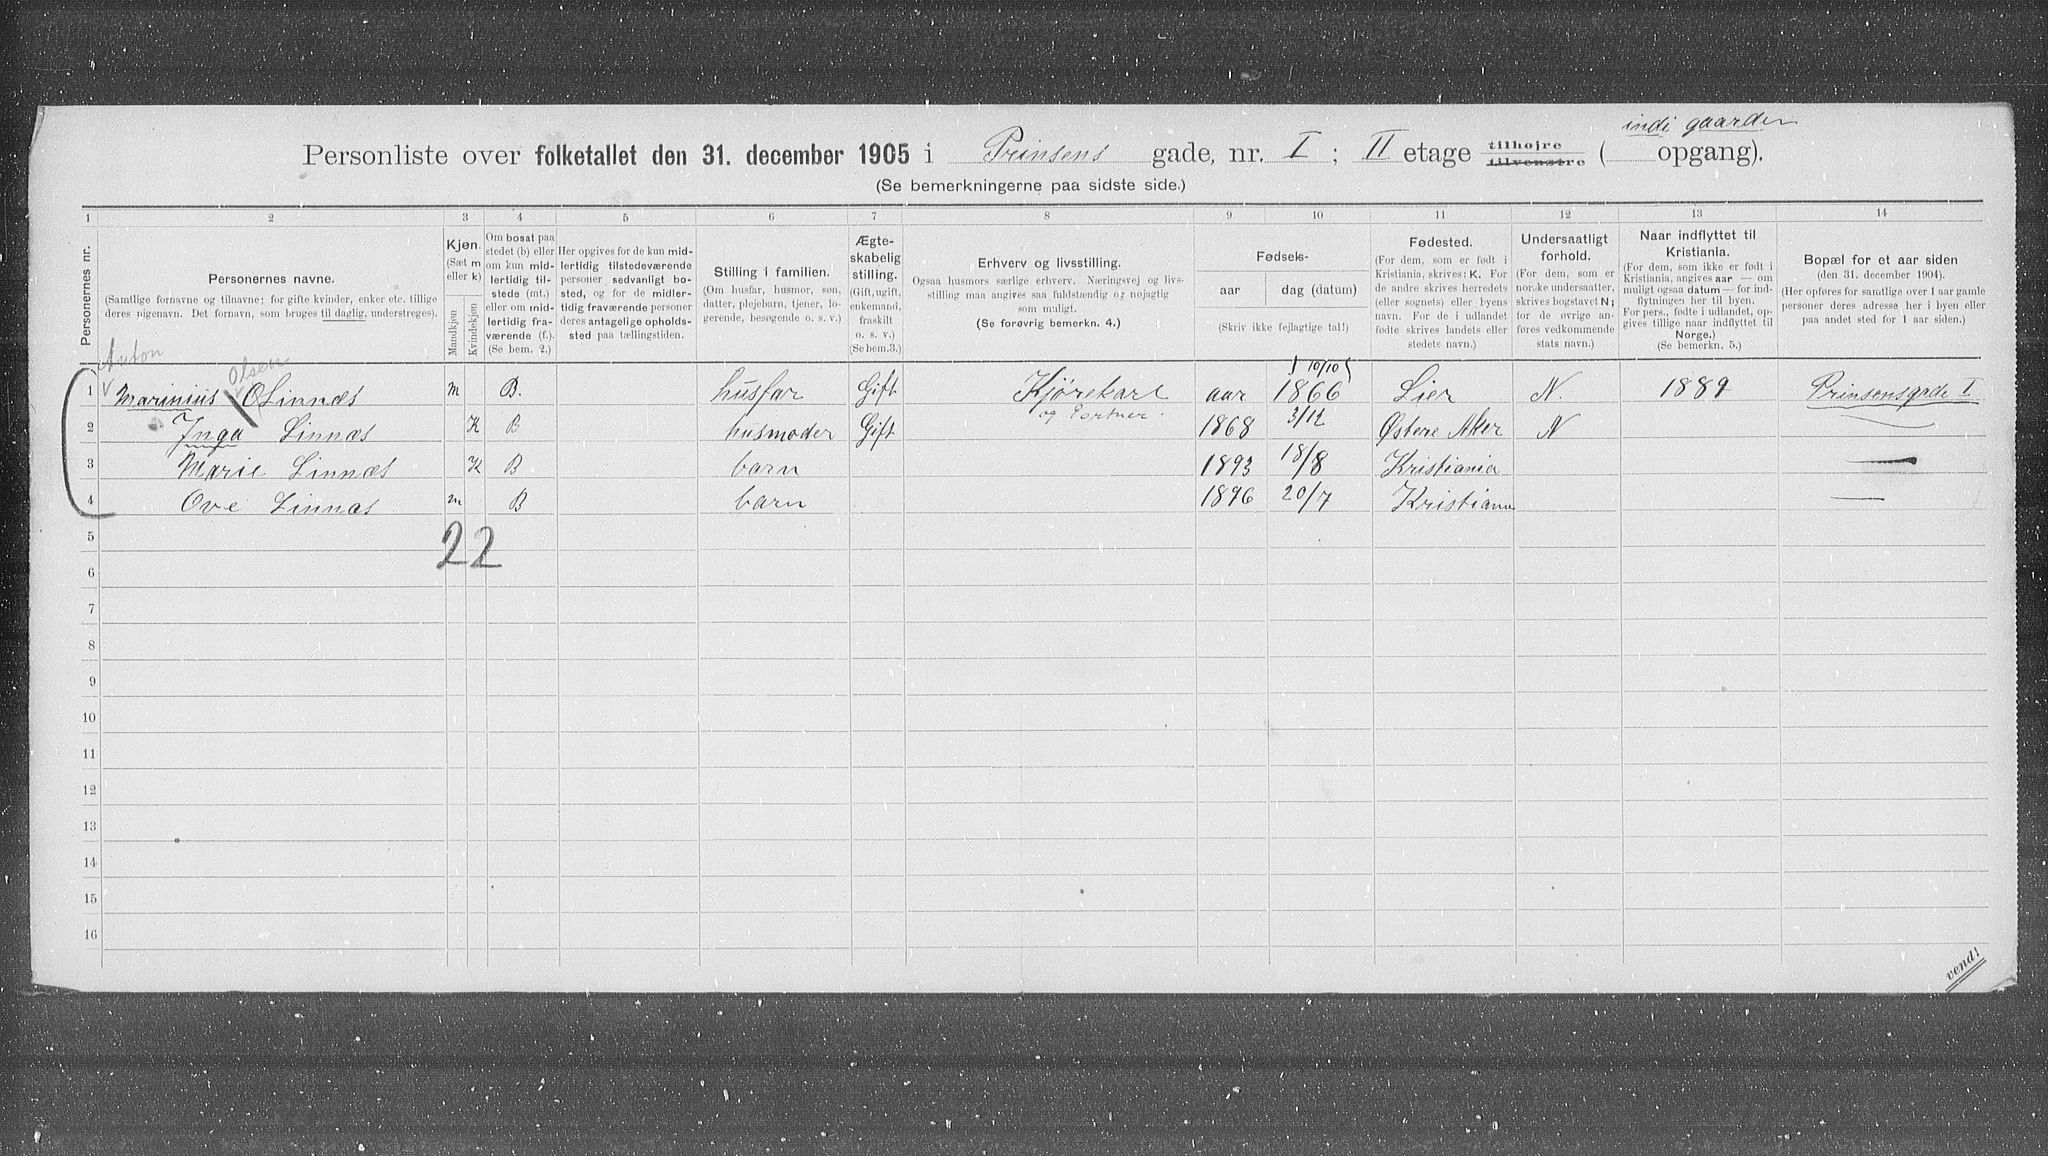 indi gaarden
Personliste over folketallet den 31. december 1905 i Prinsens gade, nr. I ; II etage tilhøjre tilvenstre ( opgang).
(Se bemerkningerne paa sidste side.)
1 2 3 4 5 6 7 8 9 10 11 12 13 14
Personernes nr.
Personernes navne.
(Samtlige fornavne og tilnavne; for gifte kvinder, enker etc. tillige
deres pigenavn. Det fornavn, som bruges til daglig, understreges).
Kjøn.
(Sæt m
eller k)
Mandkjøn
Kvindekjøn
Om bosat paa
stedet (b) eller
om kun mid-
lertidig til-
stede (mt.)
eller om mid-
lertidig fra-
værende (f.).
(Se bem. 2.)
Her opgives for de kun mid-
lertidig tilstedeværende
personer sedvanligt bo-
sted, og for de midler-
tidig fraværende personer
deres antagelige opholds-
sted paa tællingstiden.
Stilling i familien.
(Om husfar, husmor, søn,
datter, plejebarn, tjener, lo-
gerende, besøgende o. s. v.)
Ægte-
skabelig
stilling.
(Gift, ugift,
enkemand,
fraskilt
o. s. v.)
(Se bem.3.)
Erhverv og livsstilling.
Ogsaa husmors særlige erhverv. Næringsvej og livs-
stilling maa angives saa fuldstændig og nøjagtig
som muligt.
(Se forøvrig bemerkn. 4.)
Fødsels-
aar dag (datum)
(Skriv ikke fejlagtige tal!)
Fødested.
(For dem, som er født i
Kristiania, skrives: K. For
de andre skrives herredets
(eller sognets) eller byens
navn. For de i udlandet
fødte skrives landets eller
stedets navn.)
Undersaatligt
forhold.
(For dem, som er
norske undersaatter,
skrives bogstavet N;
for de øvrige an-
føres vedkommende
stats navn.)
Naar indflyttet til
Kristiania.
(For dem, som ikke er født i
Kristiania, angives aar — om
muligt ogsaa datum — for ind-
flytningen her til byen.
For pers., fødte i udlandet, op-
gives tillige naar indflyttet til
Norge.)
(Se bemerkn. 5.)
Bopæl for et aar siden
(den 31. december 1904).
(Her opføres for samtlige over 1 aar gamle
personer deres adresse her i byen eller
paa andet sted for 1 aar siden.)
Anton Olsen
1 Marinius O Linnæs m B. husfar Gift Kjørekarl og Portner. aar 10/10 1866 Lier N. 1889 Prinsensgade I
2 Inga Linnæs K B husmoder Gift 1868 3/12 Østere Aker N
3 Marie Linnæs K B barn 1893 18/8 Kristiania —
4 Ove Linnæs m B barn 1896 20/7 Kristiana —
5
22
6
7
8
9
10
11
12
13
14
15
16
vend!